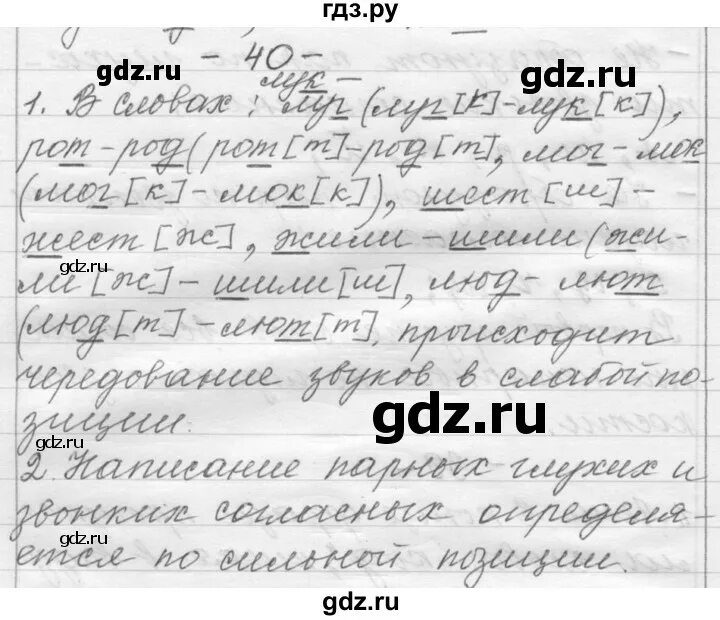 гдз.ру
- 40 -
gdz.ru
лук -
1. В словах: луг (луг [к] - лук [к]),
рот - род (рот [т] - род [т], мог - мок
(мог [к] - мок [к]), шест [ш] -
жест [ж], жили - шили (жи-
gdz.ru
ли [ж] - шили [ш], люд - лют
(люд [т] - лют [т], происходит
чередование звуков в слабой по-
gdz.ru
зиции.
gdz.ru
2. Написание парных глухих и
звонких согласных определя-
gdz.ru
ется по сильной позиции.
gdz.ru